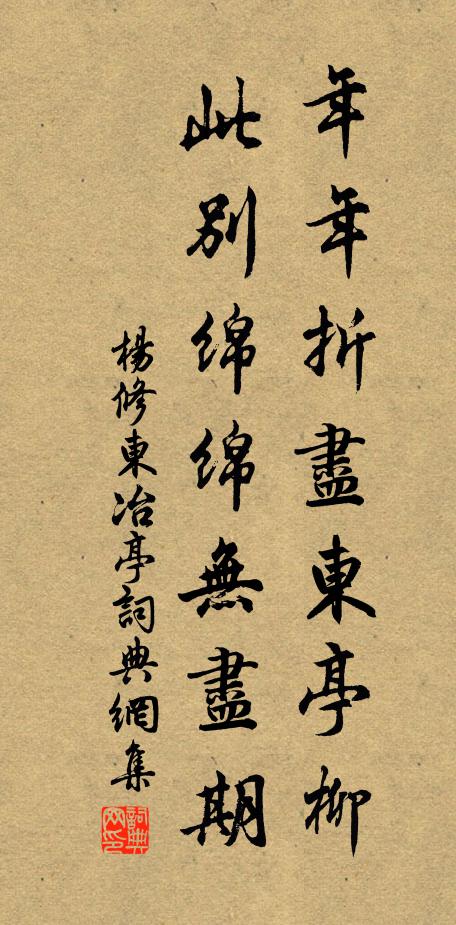 年年折盡東亭柳
此別綿綿無盡期
楊修東冶亭詞典網集
詞典网印